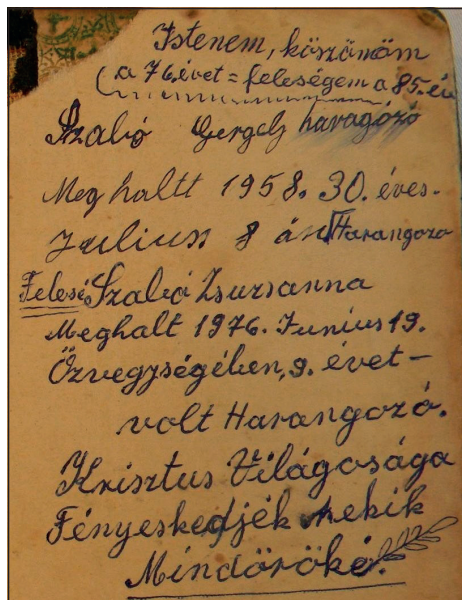 Istenem, köszönöm
(a 76 évet = feleségem a 85. év
Szabó Gergely haragózó
Meg haltt 1958. 30. éves.
Julius 8 án Harangozo
Felesé Szabó Zsuzsanna
Meghalt 1976. Junius 19.
Özvegységében, 9. évet-
volt Harangozó.
Krisztus Világosága
Fényeskedjék nekik
Mindöröké.